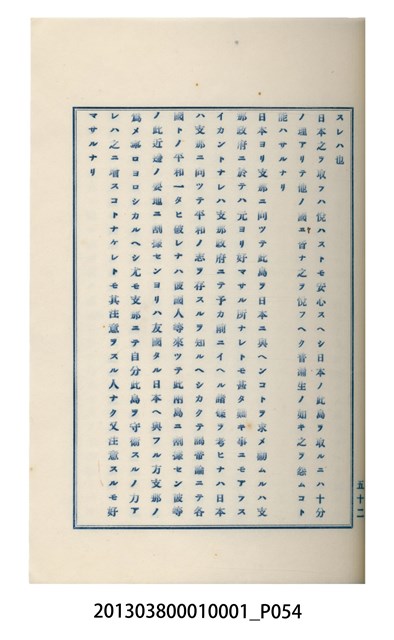 スレハ也
日本之ヲ取フハ悅ハストモ安心スヘシ日本ノ此島ヲ取ルニハ十分
ノ理アリテ他ノ國ニ曾ナ之ヲ悅フヘク皆生ノ如キ之ヲ怨ムコト
能ハサルナリ
日本ヨリ支那ニ向ツテ此島ヲ日本ニ與ヘンコトヲ求メ勸ムルハ支
那政府ニ於テハ元ヨリ好マサル所ナレトモ甚タ難キ事ニモアラス
イカントナレハ支那政府ニテ予カ前ニイヘル諸疑ヲ考ヒナハ日本
ハ支那ニ向ツテ平和ノ志ヲ存スルヲ知ルヘシカクテ論ニテ各
國トノ平和一タヒ破レナハ彼國人等來ツテ此兩島ニ割據セン彼等
ノ此近邊ノ要地ニ割據センヨリハ友國タル日本ヘ與フル方支那ノ
爲メ寧ロヨロシカルヘシ尤モ支那ニテ自分此島ヲ守備スルノ力ア
レハ之ニ增スコトナケレトモ其注意ヲスル人ナク又注意スルモ好
マサルナリ
五十二
201303800010001_P054